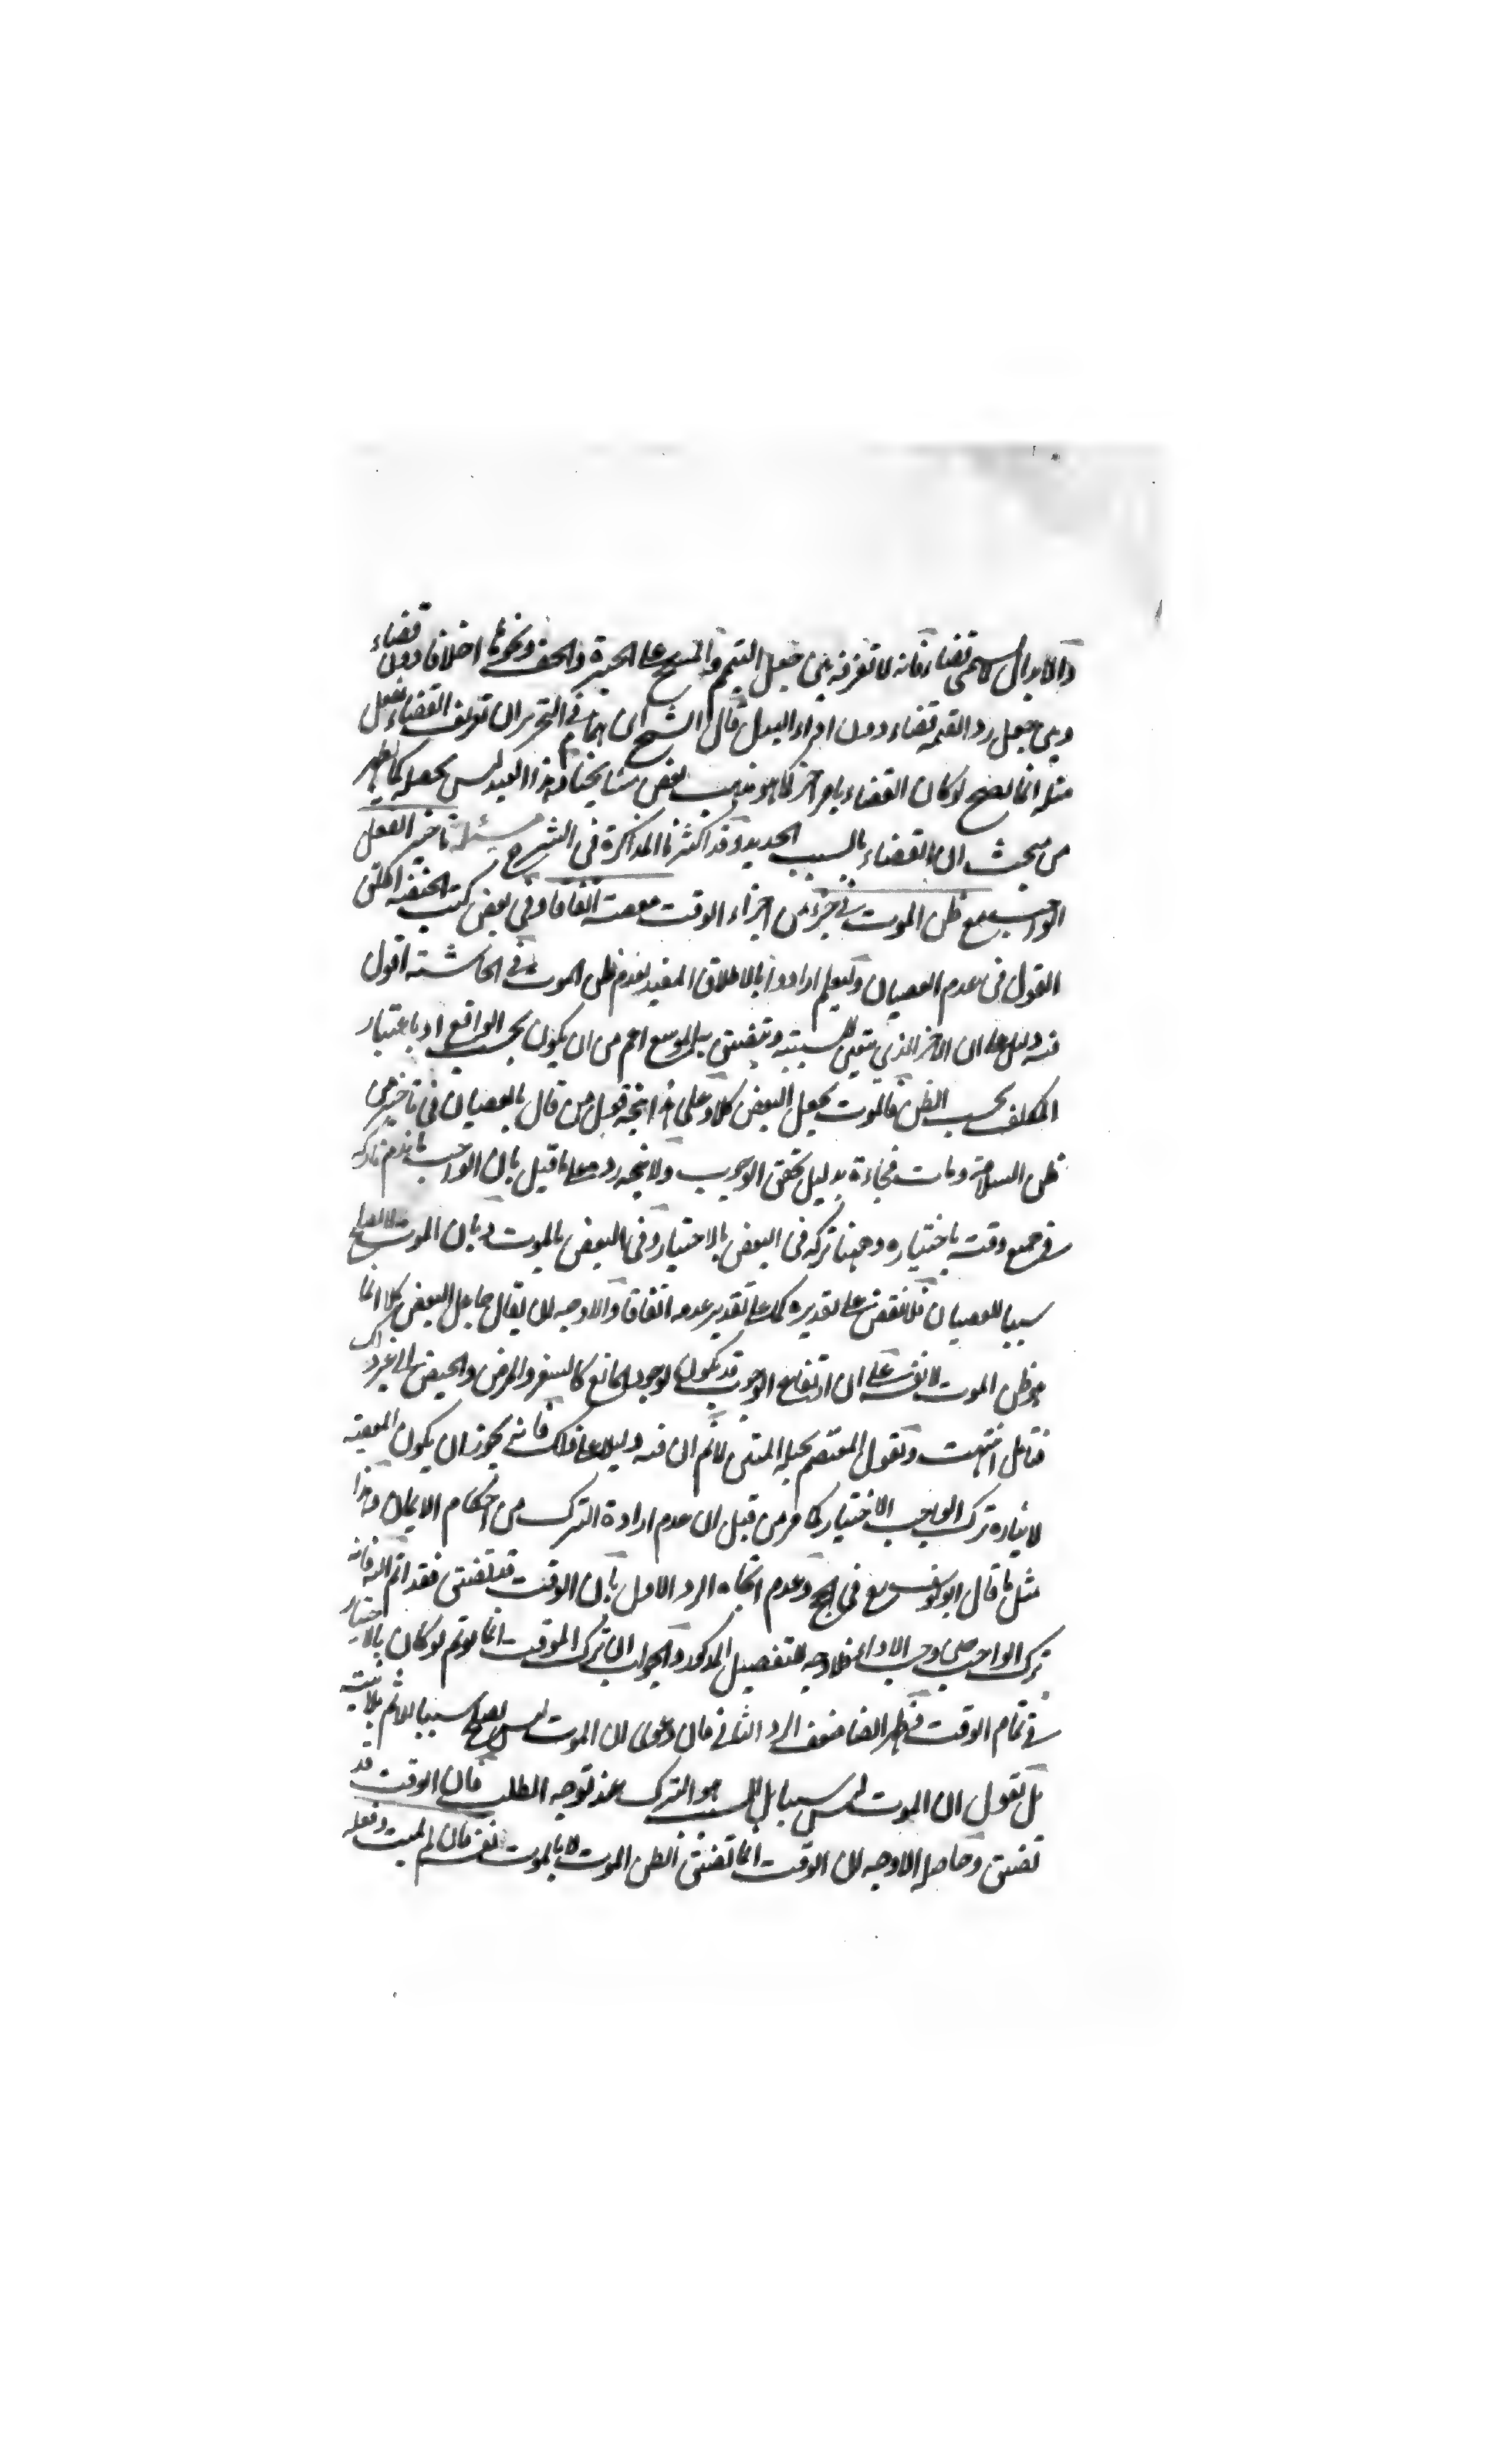 والابدال لا تسمى قضاء فانه لا تفرقة بين جعل التيمم والمسح على الجبيرة والخف ونحوها اخلافا دون قضاء
وبين جعل رد القيمة قضاء دون اداء البدل قال الشيخ ابن همام في التحرير ان تعريف القضاء بفعل
مثله انما يصح لو كان القضاء بامر اخر كما هو مذهب بعض مشايخنا وهذا البعيد ليس بعيد كما يظهر
من مبحث ان القضاء بالسبب الجديد وقد اكثرنا المذاكرة في الشرح مسئلة تاخير الفعل
الواجب مع ظن الموت في جزء من اجزاء الوقت معصية اتفاقا وفي بعض كتب الحنفية اطلق
القول في عدم العصيان ولعلهم ارادوا بالاطلاق المقيد بعدم ظن الموت في الحاشية اقول
فيه دليل على ان الاخر الذي يتعين للسببية ويتضيق به الموسع اعم من ان يكون بحسب الواقع او باعتبار
المكلف بحسب الظن فالموت يجعل البعض كلا وعلى هذا يتجه قول من قال بالعصيان في تاخير من
ظن السلامة ومات فجاءة بدليل تحقق الوجوب ولا يتجه رده على ما قيل بان الواجب ما يذم تاركه
في جميع وقته باختياره وههنا تركه في البعض بالاختيار وفي البعض بالموت وبان الموت لا يصلح
سببا للعصيان فلا نقض على تقديره كما على تقدير عدمه اتفاقا والاوجه ان يقال جاعل البعض كلا انما
هو ظن الموت لا نفسه على ان ارتفاع الوجوب قد يكون لوجود المانع كالسفر والمرض والحيض الى غير ذلك
فتامل انتهت ويقول المعتصم بحبله المتين لا نم ان فيه دليلا على ذلك فانه يجوز ان يكون المعصية
لارادة ترك الواجب الاختيار كما مر من قبل ان عدم ارادة الترك من احكام الايمان وهذا
مثل ما قال ابو يوسف رح في الحج وعدم اتجاه الرد الاول بان الوقت قد تضيق فقد اثم البتة فانه
ترك الواجب حين وجب الاداء فلا وجه للتفصيل المذكور والجواب ان ترك الموقت انما يوثم لو كان بالاختيار
في تمام الوقت فظهر ايضا ضعف الرد الثاني فان دعوى ان الموت ليس يصلح سببا للاثم بلا بينة
بل نقول ان الموت ليس سببا بل السبب هو الترك عند توجه الطلب فان الوقت قد
تضيق وحاصل الاوجه ان الوقت انما تضيق بظن الموت لا بالموت نفسه فان لم يمت وفعله